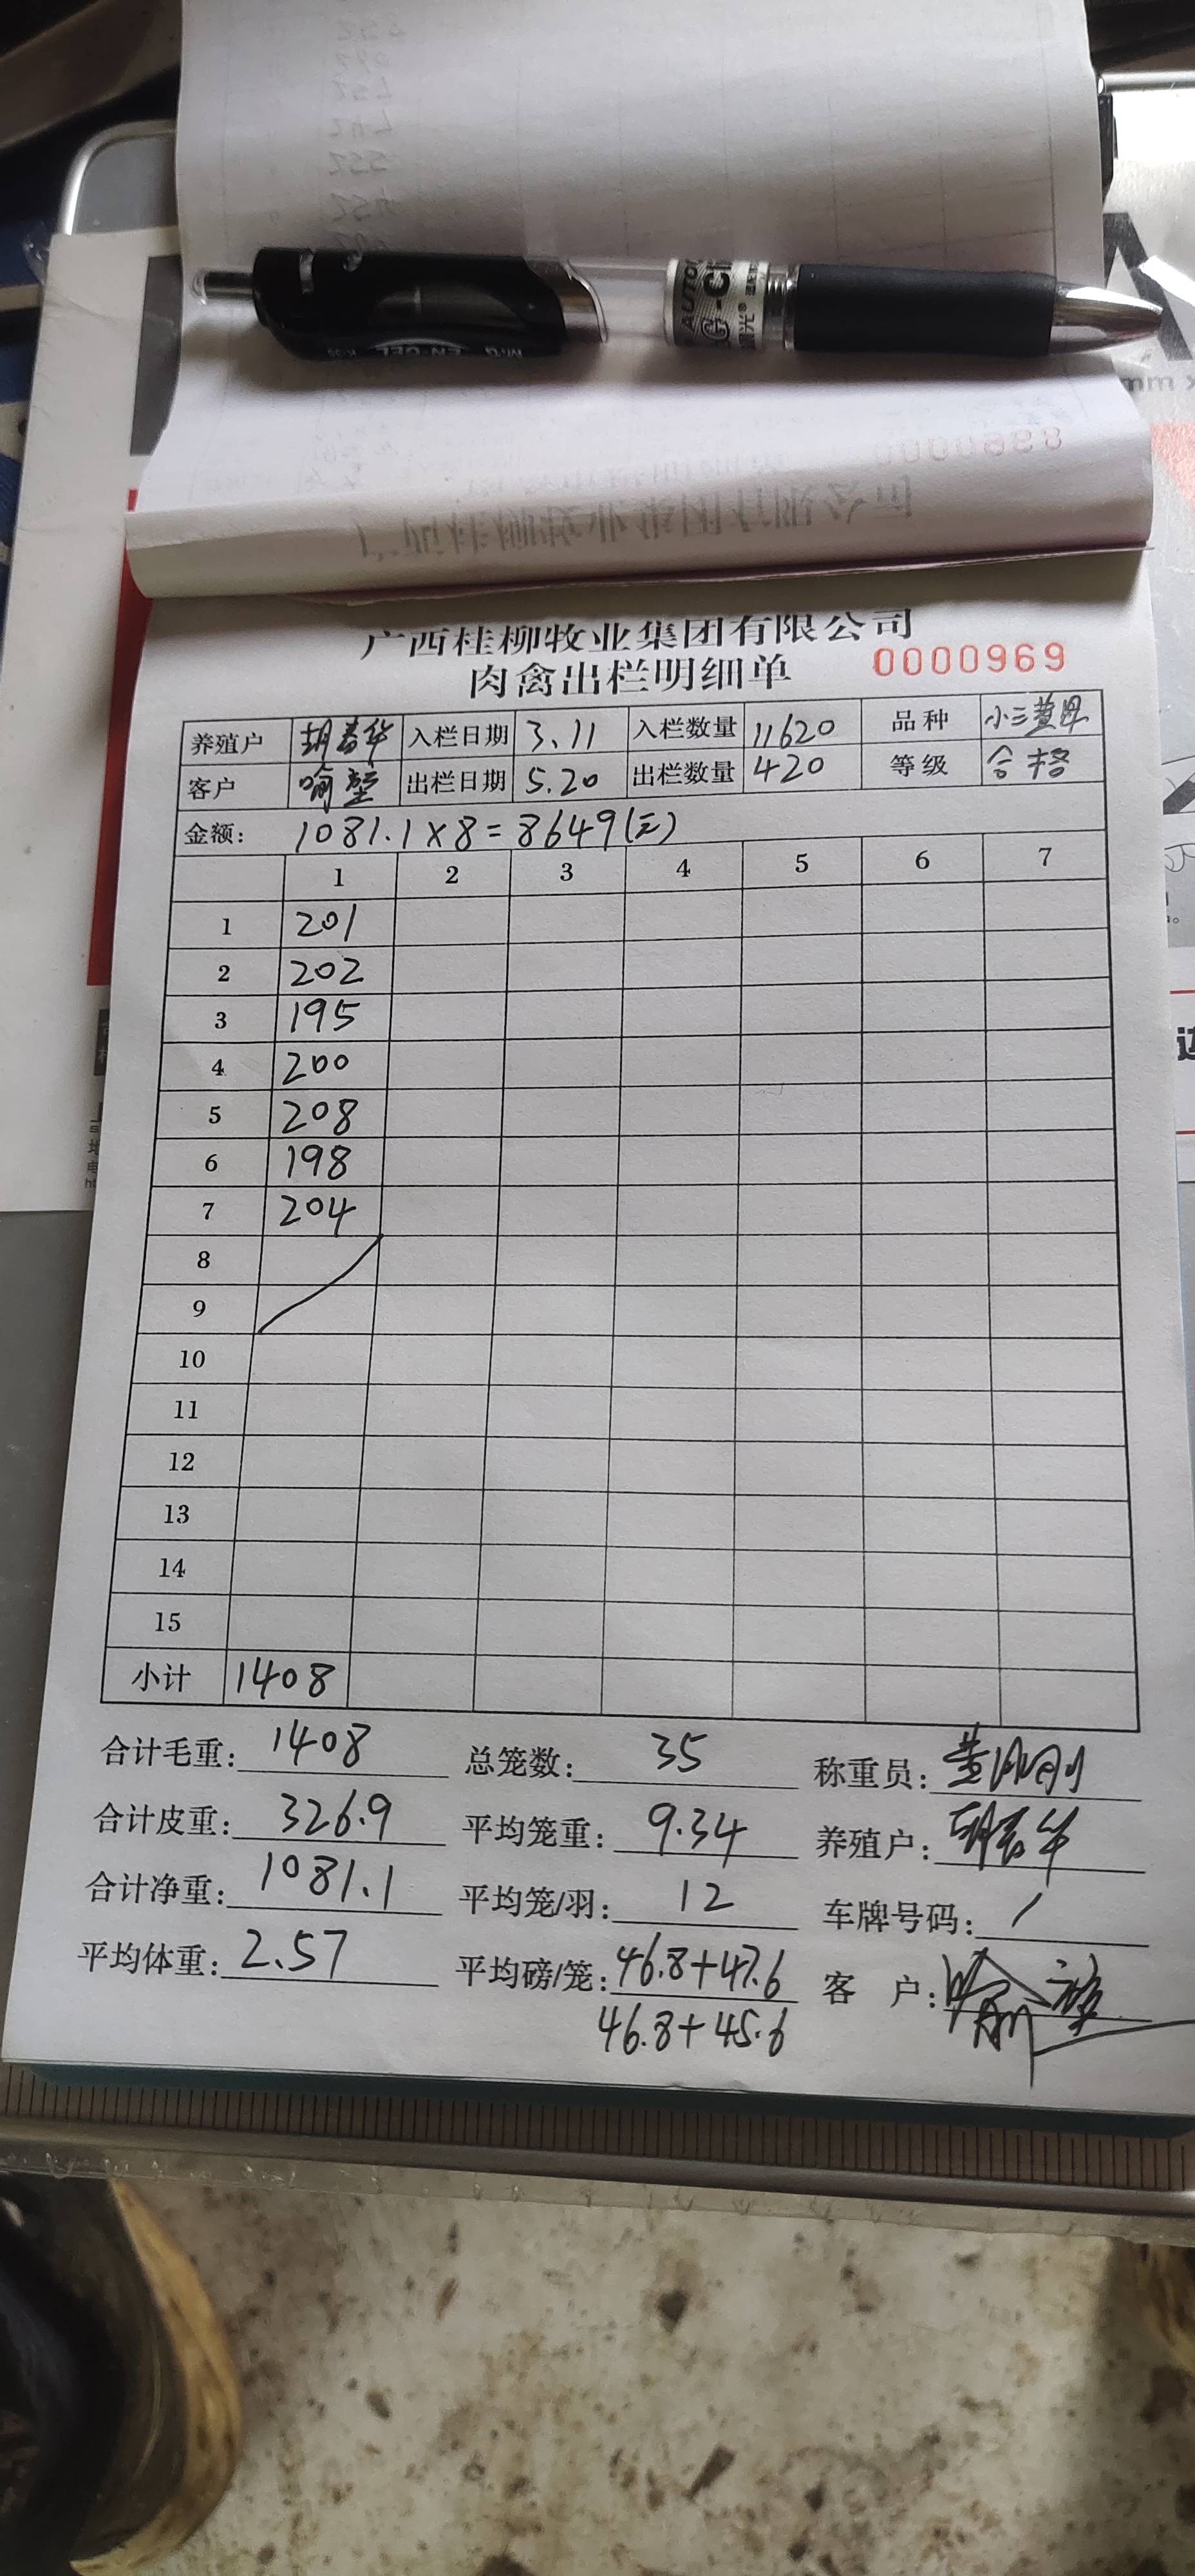 广西桂柳牧业集团有限公司
肉禽出栏明细单 0000969
养殖户 胡春华 入栏日期 3.11 入栏数量 11620 品种 小三黄
客户 喻 出栏日期 5.20 出栏数量 420 等级 合格
金额: 1081.1×8=8649(元)
1 2 3 4 5 6 7
1 201
2 202
3 195
4 200
5 208
6 198
7 204
8
9
10
11
12
13
14
15
小计 1408
合计毛重: 1408 总笼数: 35 称重员: 黄
合计皮重: 326.9 平均笼重: 9.34 养殖户: 胡春华
合计净重: 1081.1 平均笼/羽: 12 车牌号码: /
平均体重: 2.57 平均磅/笼: 46.8+47.6 客 户: 喻
46.8+45.6